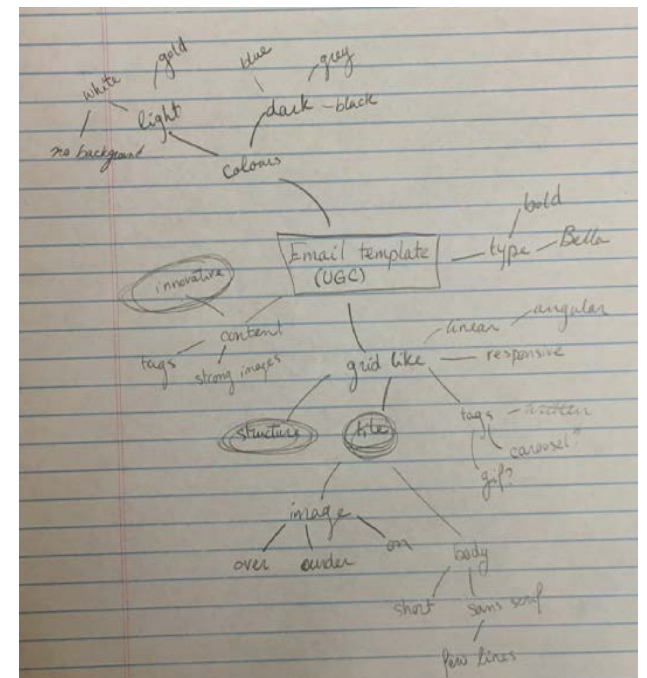 gold
blue
grey
white
light
dark - black
no background
colours
bold
Email template
(UGC)
type
Bella
innovative
content
tags
strong images
linear
angular
grid like
responsive
structure
tags
carousel*
gif?
image
over
under
on
body
short
sans serif
few lines